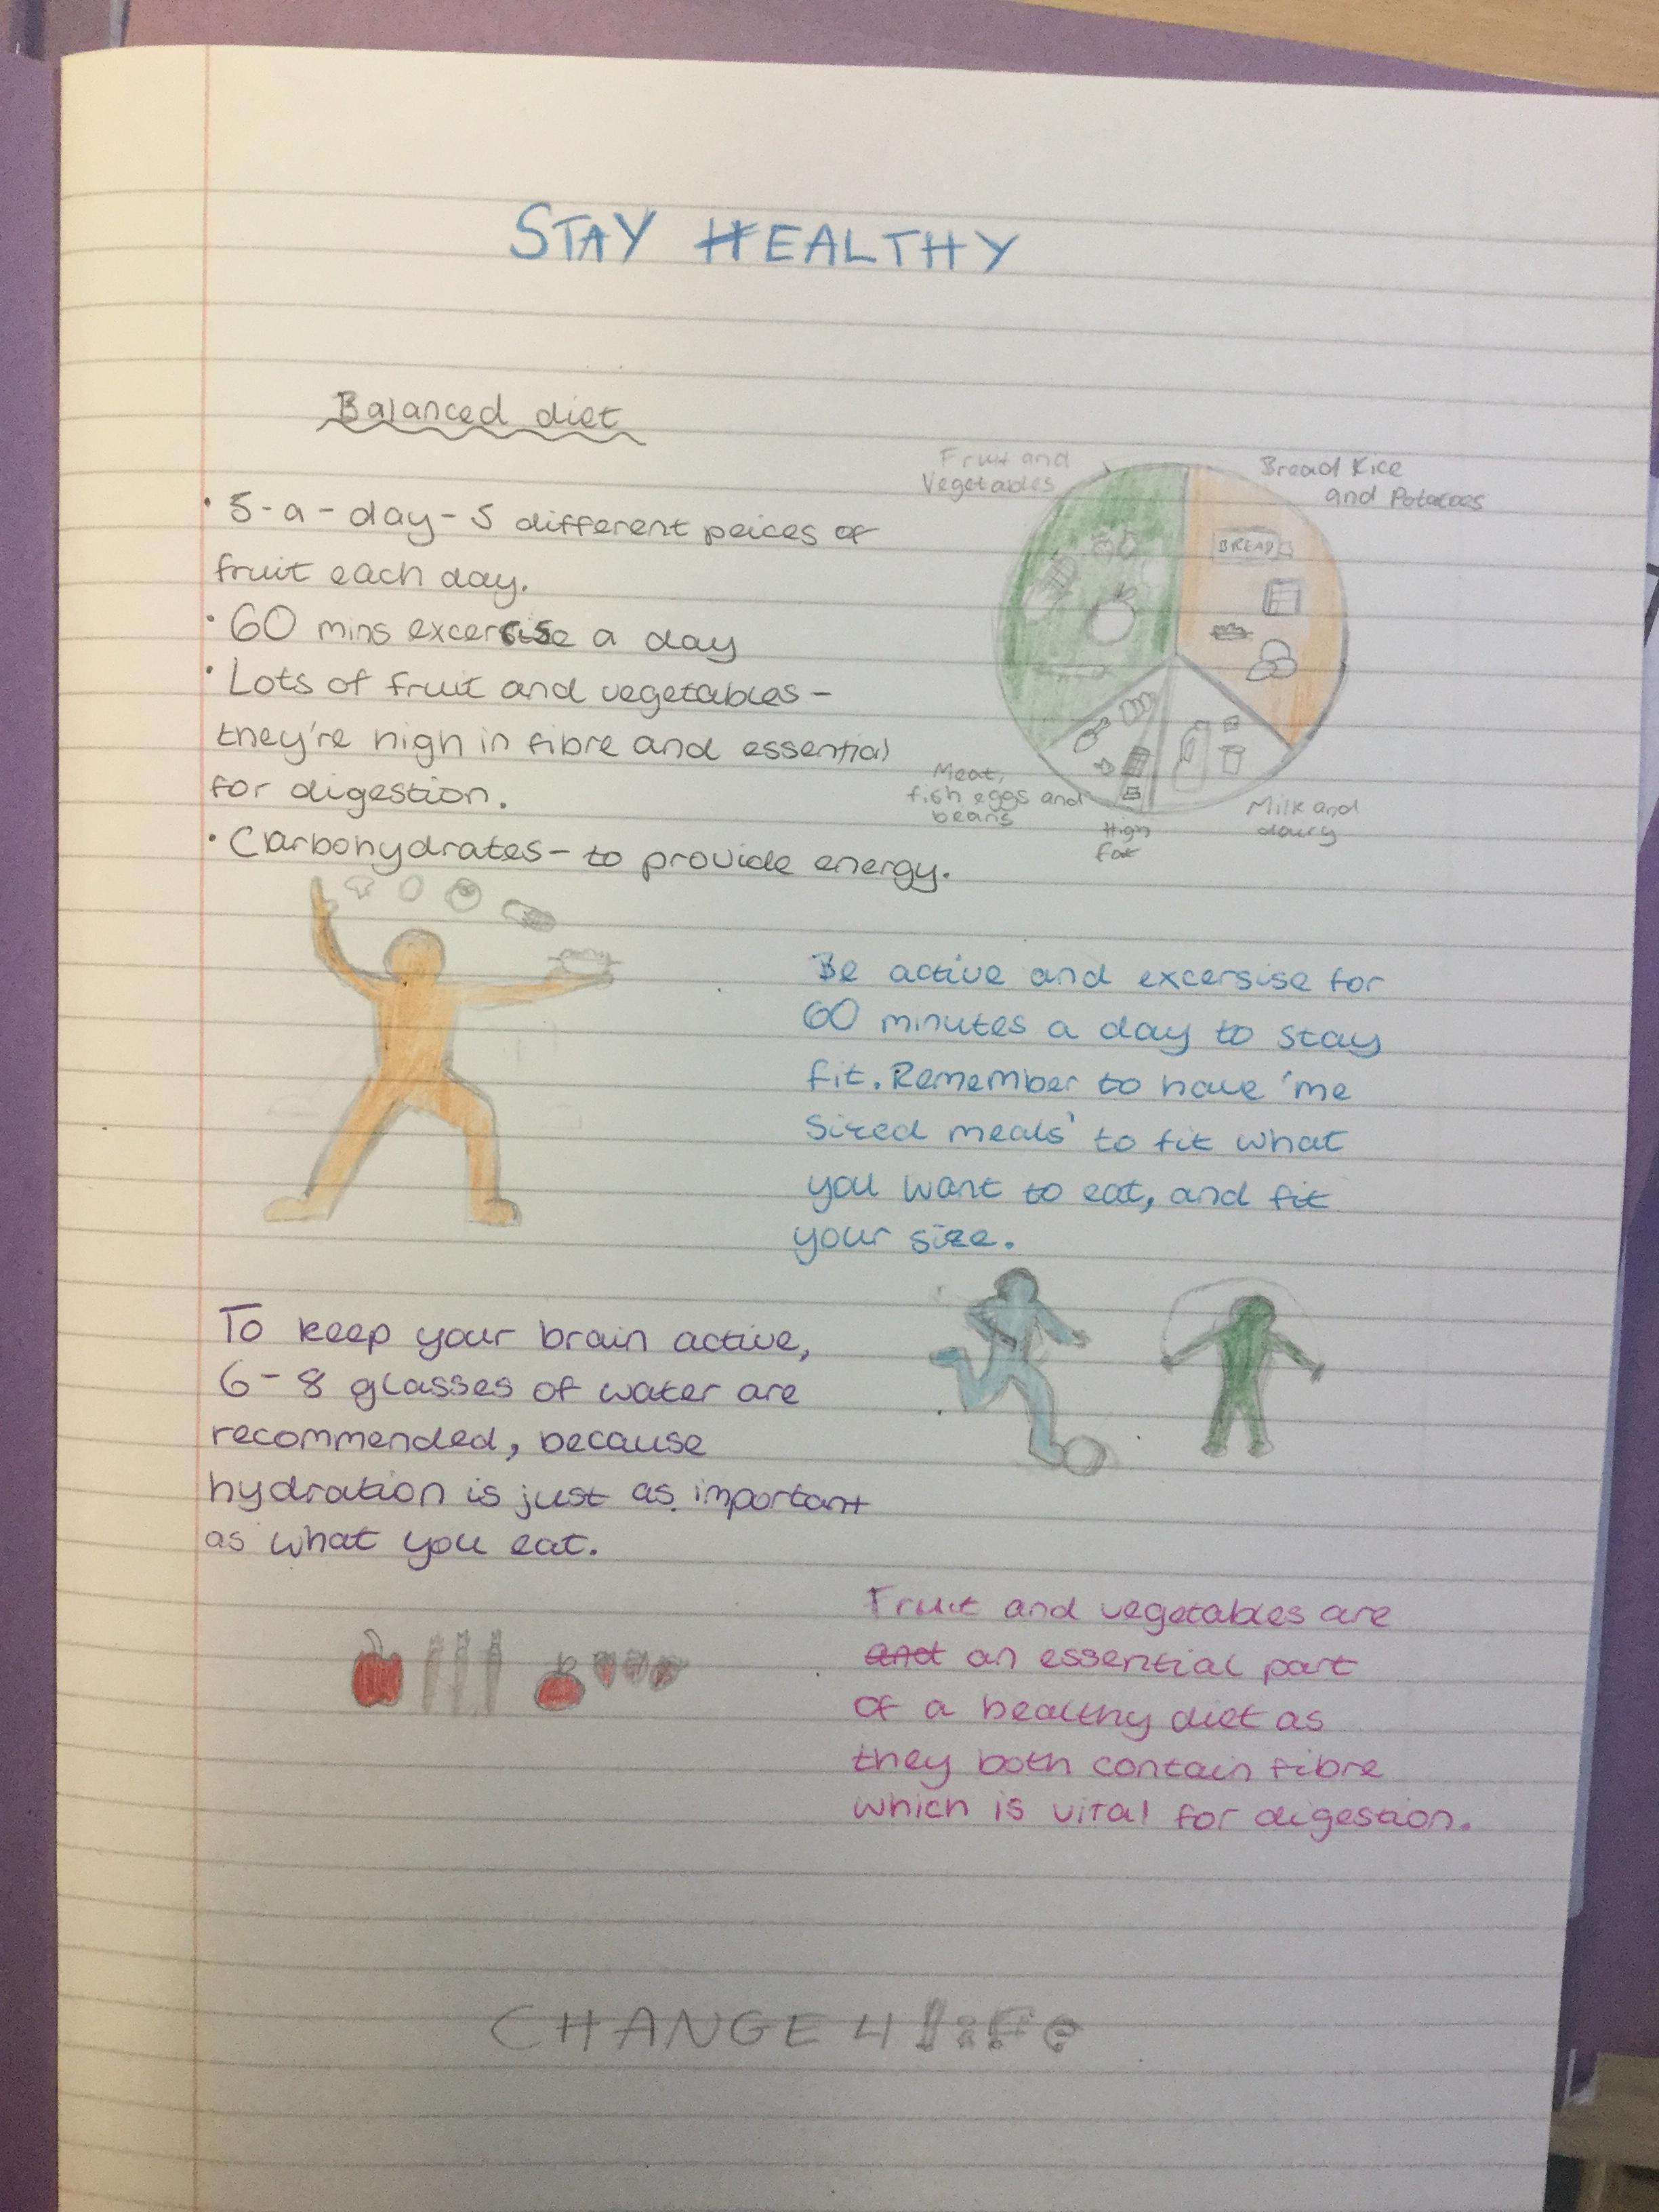 STAY HEALTHY
Balanced diet
• 5-a-day-5 different peices of
fruit each day.
• 60 mins excersise a day
• Lots of fruit and vegetables-
they're high in fibre and essential
for digestion.
• Carbohydrates- to provide energy.
Fruit and
Vegetables
Bread Rice
and Potatoes
BREAD
Meat,
fish eggs and
beans
High
fat
Milk and
dairy
Be active and excersise for
60 minutes a day to stay
fit. Remember to have 'me
sized meals' to fit what
you want to eat, and fit
your size.
To keep your brain active,
6-8 glasses of water are
recommended, because
hydration is just as important
as what you eat.
Fruit and vegetables are
an essential part
of a healthy diet as
they both contain fibre
which is vital for digestion.
CHANGE 4 life